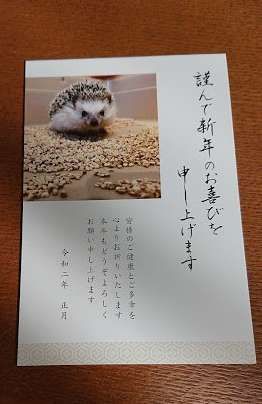 謹んで新年のお喜びを
申し上げます
皆様のご健康とご多幸を
心よりお祈りいたします
本年もどうぞよろしく
お願い申し上げます
令和二年 正月